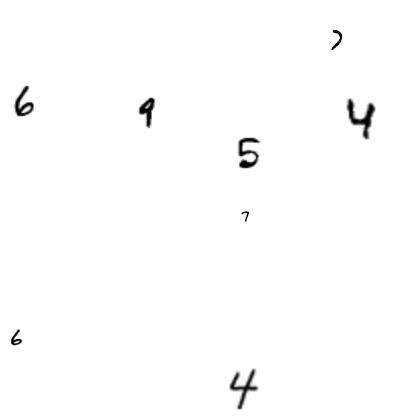 7
6 9 4
5
7
6
4